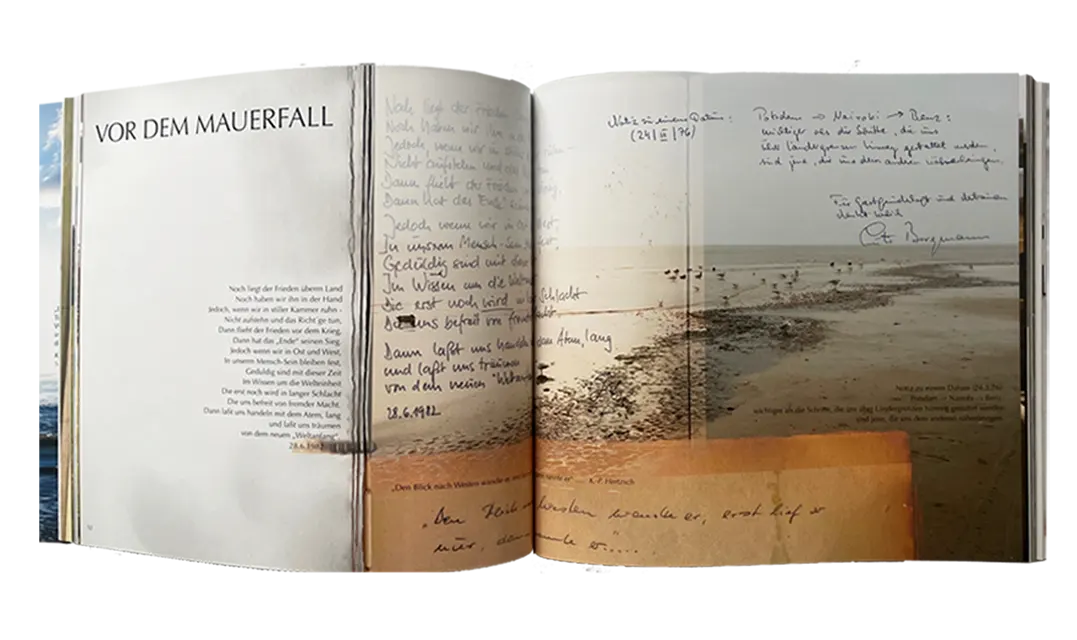 VOR DEM MAUERFALL
Noch liegt der Frieden überm Land
Noch haben wir ihn in der Hand
Jedoch, wenn wir in stiller Kammer ruhn -
Nicht aufstehn und das Richt'ge tun,
Dann flieht der Frieden vor dem Krieg,
Dann hat das „Ende" seinen Sieg.
Jedoch wenn wir in Ost und West,
In unserm Mensch-Sein bleiben fest,
Geduldig sind mit dieser Zeit
Im Wissen um die Welteinheit
Die erst noch wird in langer Schlacht
Die uns befreit von fremder Macht.
Dann laßt uns handeln mit dem Atem, lang
und laßt uns träumen
von dem neuen „Weltanfang"
28.6.1982
Noch liegt der Frieden
Noch haben wir ihn
Jedoch, wenn wir in
Nicht aufstehn und
Dann flieht der Frieden
Dann hat das "Ende"
Jedoch wenn wir in
In unserm Mensch-Sein
Geduldig sind mit dieser
Im Wissen um die
Die erst noch wird Schlacht
uns befreit von
Dann laßt uns handeln dem Atem, lang
und laßt uns träumen
von dem neuen
28.6.1982
„Den Blick nach Westen wandte er, K.-P. Hertzsch
„Den Westen wandte er, erst lief er
nur, er.....
Notiz zu einem Datum:
(24/II/76)
Potsdam → Nairobi → Renz:
wichtiger als die Schritte, die uns
über Landesgrenzen hinweg gestattet werden,
sind jene, die uns dem anderen näherbringen.
Für Gastfreundschaft und
dankt
Borgmann
Notiz zu einem Datum (24.2.76)
Potsdam - Nairobi - Renz:
wichtiger als die Schritte, die uns über Landesgrenzen hinweg gestattet werden
sind jene, die uns dem anderen näherbringen.